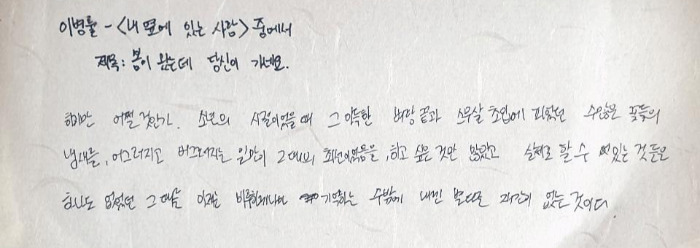 이병률 - <내 옆에 있는 사람> 중에서
제목: 봄이 왔는데 당신이 가네요.
하지만 어쩔 것인가. 소년의 시절이었을 때 그 아득한 벼랑 끝과 스무살 초입에 피었던 수많은 꽃들의
냄새를, 어그러지고 버그러지는 일만이 그때의 최선이었음을, 하고 싶은 것만 많았고 실제로 할 수 있는 것들은
하나도 없었던 그 때를 이제는 비루하게나마 기억하는 수밖에 내민 본다면 과건이 없는 것이다.